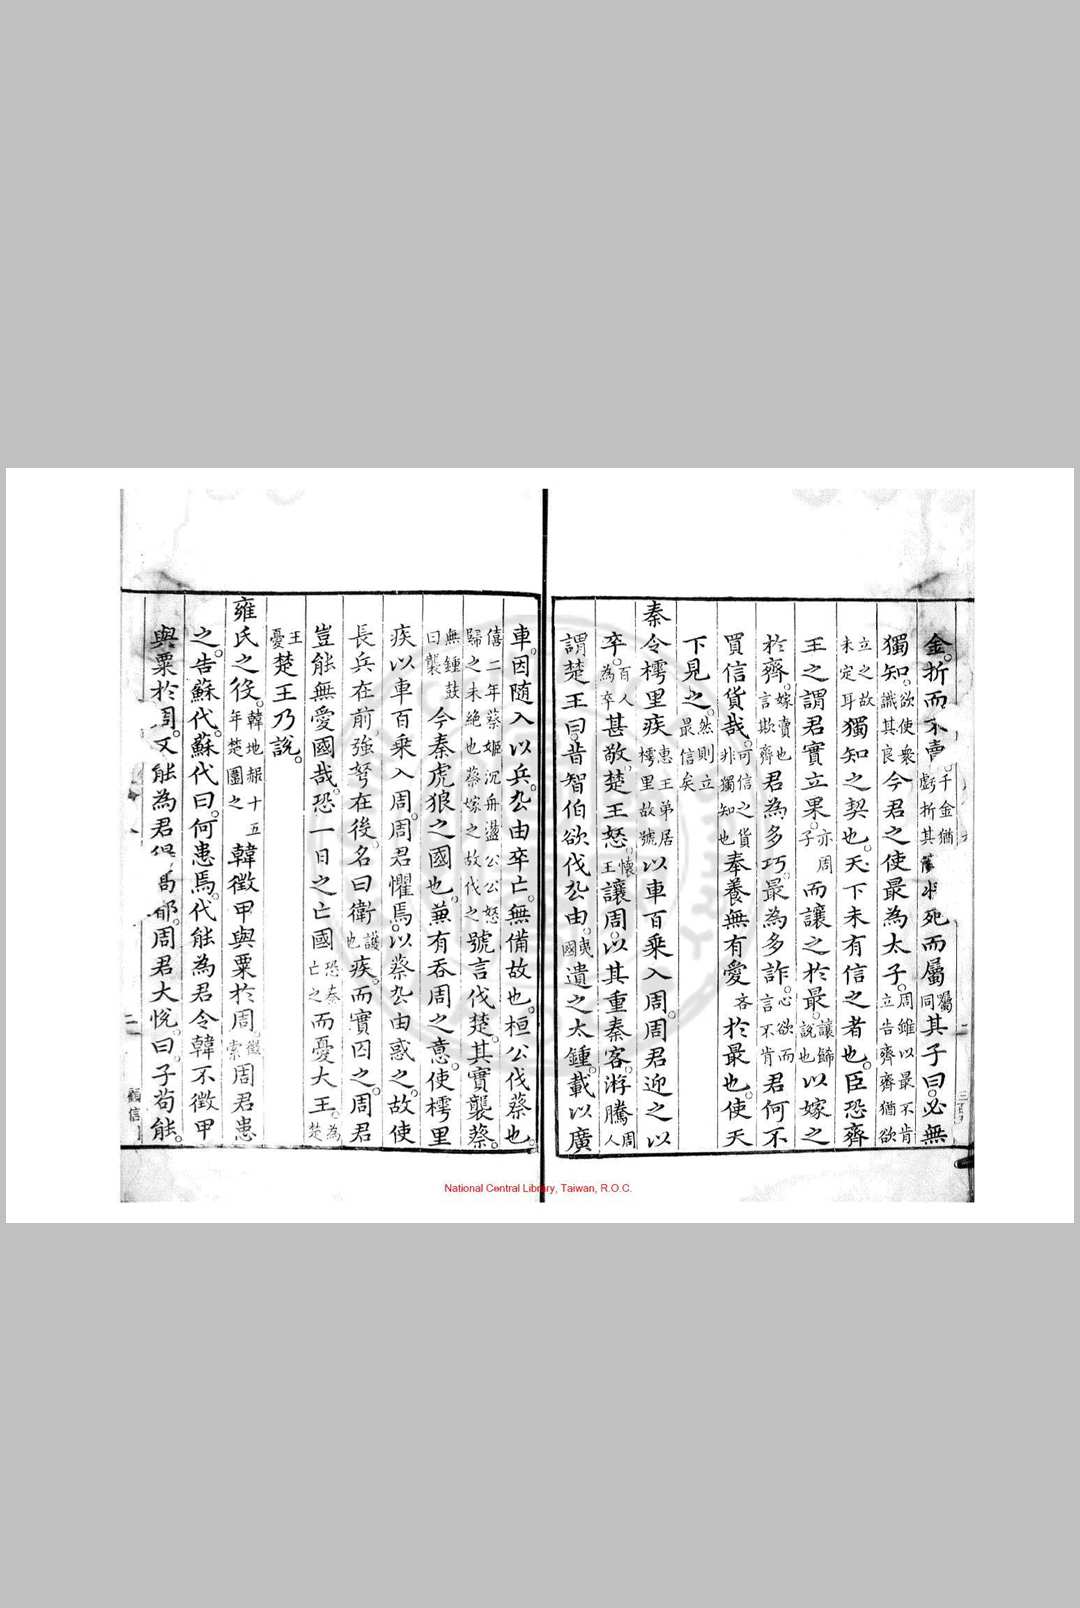 金折而不賣千金猶虧折其將死而屬屬同其子曰必無
獨知欲使衆識其良今君之使最為太子周雖以最不肯立告齊齊猶欲
立之故未定耳獨知之契也天下未有信之者也臣恐齊
王之謂君實立果亦周子而讓之於最讓歸說也以嫁之
於齊嫁賣也言欺齊君為多巧最為多詐心欲而言不肯君何不
買信貨哉可信之貨非獨知也奉養無有愛吝於最也使天
下見之然則立最信矣
秦令樗里疾惠王弟居樗里故號以車百乘入周周君迎之以
卒百人為卒甚敬楚王怒懷王讓周以其重秦客游騰周人
謂楚王曰昔智伯欲伐厹由夷國遺之太鍾載以廣
車因随入以兵厹由卒亡無備故也桓公伐蔡也
僖二年蔡姬沉舟盪公公怒歸之未絶也蔡嫁之故伐之號言伐楚其實襲蔡
無鍾鼓曰襲今秦虎狼之國也兼有吞周之意使樗里
疾以車百乘入周周君懼焉以蔡厹由惑之故使
長兵在前強弩在後名曰衛護也疾而實囚之周君
豈能無愛國哉恐一日之亡國恐秦亡之而憂大王為楚
王憂楚王乃說
雍氏之役韓地赧十五年楚圍之韓徵甲與粟於周徵索周君患
之告蘇代蘇代曰何患焉代能為君令韓不徵甲
與粟於周又能為君得高都周君大悅曰子苟能
顧信
National Central Library, Taiwan, R.O.C.